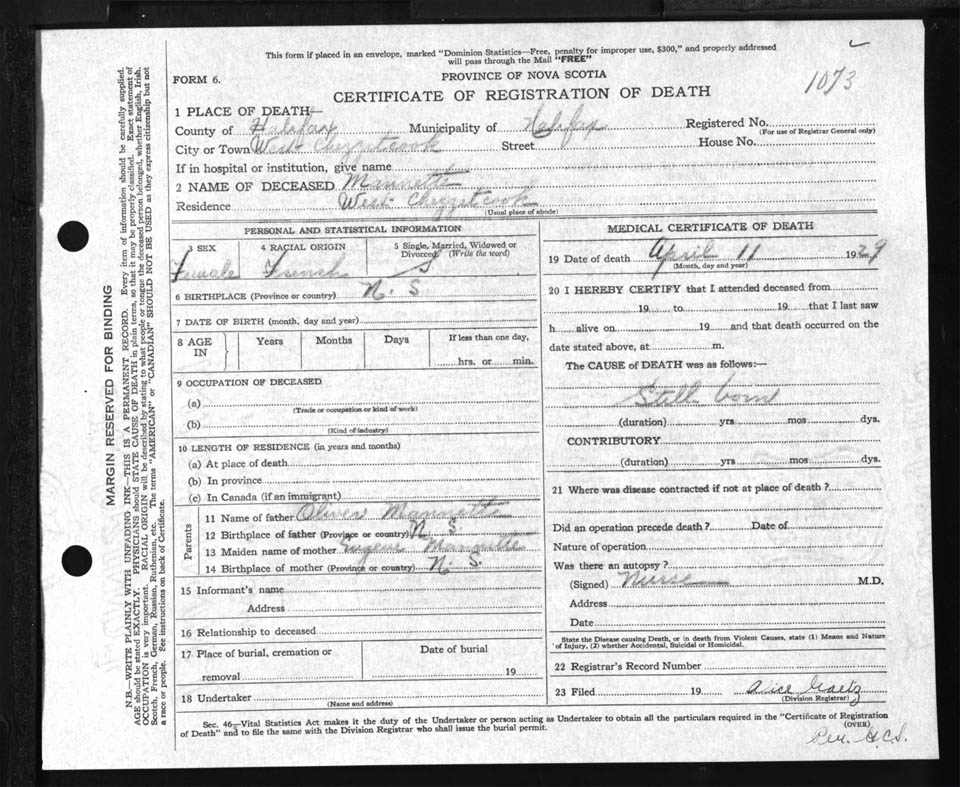 This form if placed in an envelope, marked "Dominion Statistics—Free, penalty for improper use, $300," and properly addressed
will pass through the Mail "FREE"
1073
FORM 6.
PROVINCE OF NOVA SCOTIA
CERTIFICATE OF REGISTRATION OF DEATH
1 PLACE OF DEATH—
County of Halifax Municipality of Halifax Registered No.
(For use of Registrar General only)
City or Town West Chezzetcook Street House No.
If in hospital or institution, give name
2 NAME OF DECEASED Mannette
Residence West Chezzetcook
(Usual place of abode)
PERSONAL AND STATISTICAL INFORMATION
3 SEX 4 RACIAL ORIGIN 5 Single, Married, Widowed or
Divorced (Write the word)
Female French S
6 BIRTHPLACE (Province or country) N. S
7 DATE OF BIRTH (month, day and year)
8 AGE IN Years Months Days If less than one day,
hrs. or min.
9 OCCUPATION OF DECEASED
(a)
(Trade or occupation or kind of work)
(b)
(Kind of industry)
10 LENGTH OF RESIDENCE (in years and months)
(a) At place of death
(b) In province
(c) In Canada (if an immigrant)
Parents
11 Name of father Oliver Mannette
12 Birthplace of father (Province or country) N. S.
13 Maiden name of mother Mannette
14 Birthplace of mother (Province or country) N. S.
15 Informant's name
Address
16 Relationship to deceased
17 Place of burial, cremation or Date of burial
removal 19
18 Undertaker
(Name and address)
MEDICAL CERTIFICATE OF DEATH
19 Date of death April 11 1929
(Month, day and year)
20 I HEREBY CERTIFY that I attended deceased from
19 to 19 that I last saw
h alive on 19 and that death occurred on the
date stated above, at m.
The CAUSE of DEATH was as follows:—
Still born
(duration) yrs mos dys.
CONTRIBUTORY
(duration) yrs mos dys.
21 Where was disease contracted if not at place of death?
Did an operation precede death? Date of
Nature of operation
Was there an autopsy?
(Signed) Nurse M.D.
Address
Date
State the Disease causing Death, or in death from Violent Causes, state (1) Means and Nature
of Injury, (2) whether Accidental, Suicidal or Homicidal.
22 Registrar's Record Number
23 Filed 19 Alice Gaetz
(Division Registrar)
Sec. 46—Vital Statistics Act makes it the duty of the Undertaker or person acting as Undertaker to obtain all the particulars required in the "Certificate of Registration
of Death" and to file the same with the Division Registrar who shall issue the burial permit.
(OVER)
Per. G.C.S.
MARGIN RESERVED FOR BINDING
N.B.—WRITE PLAINLY WITH UNFADING INK—THIS IS A PERMANENT RECORD. Every item of information should be carefully supplied.
AGE should be stated EXACTLY. PHYSICIANS should STATE CAUSE OF DEATH in plain terms, so that it may be properly classified. Exact statement of
OCCUPATION is very important. RACIAL ORIGIN will be described by stating to what people or tongue the deceased person belonged, whether English, Irish,
Scotch, French, German, Russian, Ruthenian, etc. The terms "AMERICAN" or "CANADIAN" SHOULD NOT BE USED as they express citizenship but not
a race or people. See instructions on back of Certificate.